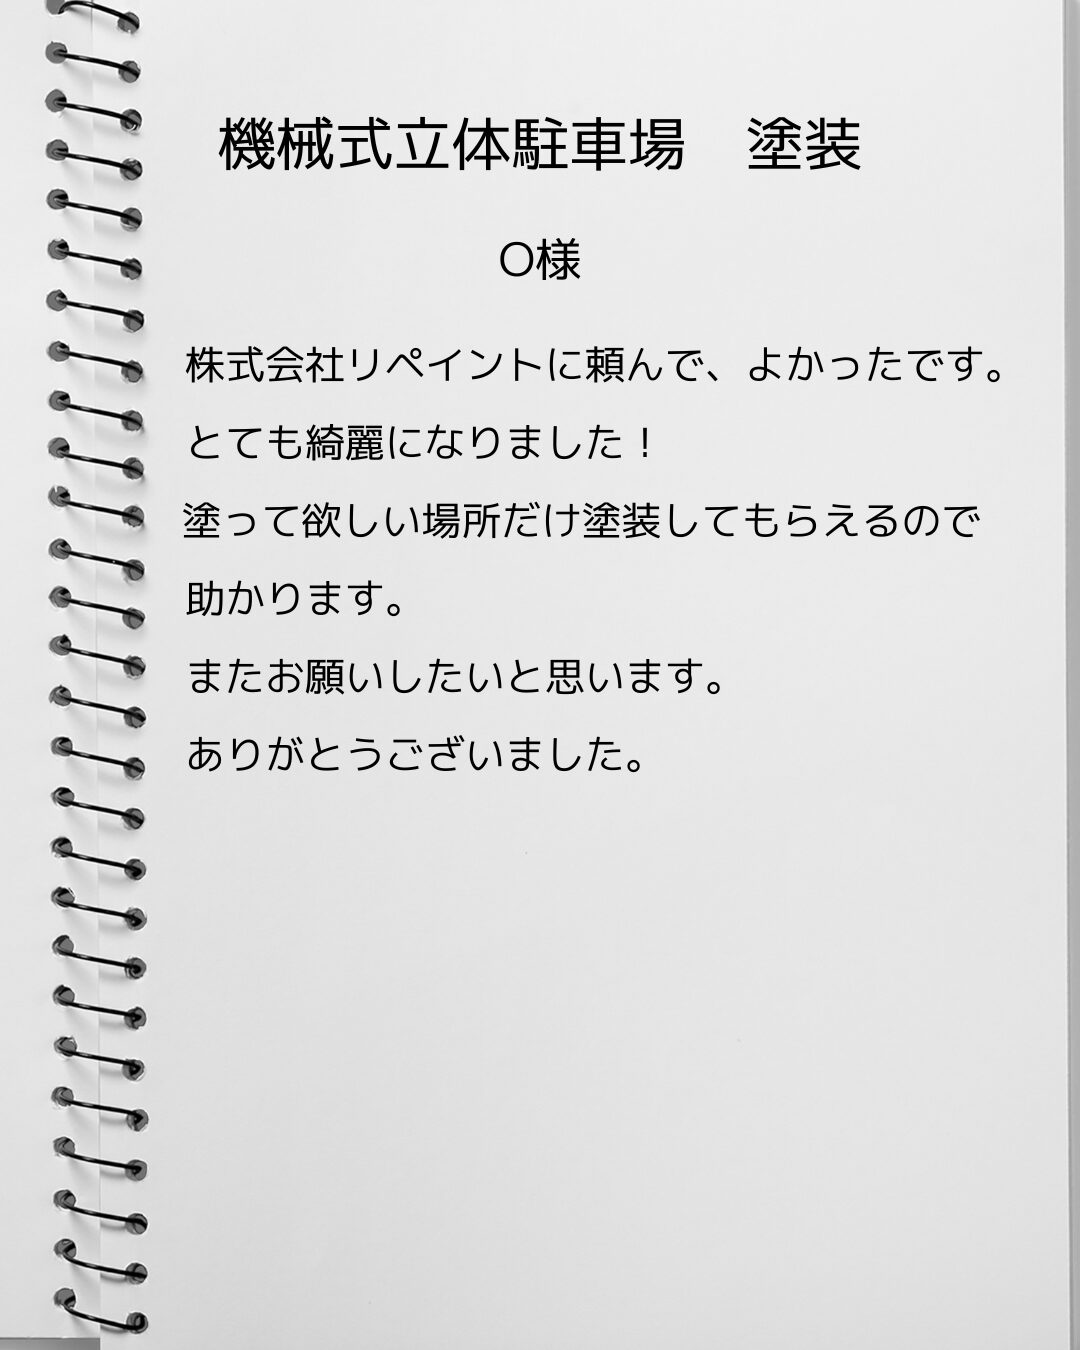 機械式立体駐車場　塗装
O様
株式会社リペイントに頼んで、よかったです。
とても綺麗になりました！
塗って欲しい場所だけ塗装してもらえるので
助かります。
またお願いしたいと思います。
ありがとうございました。